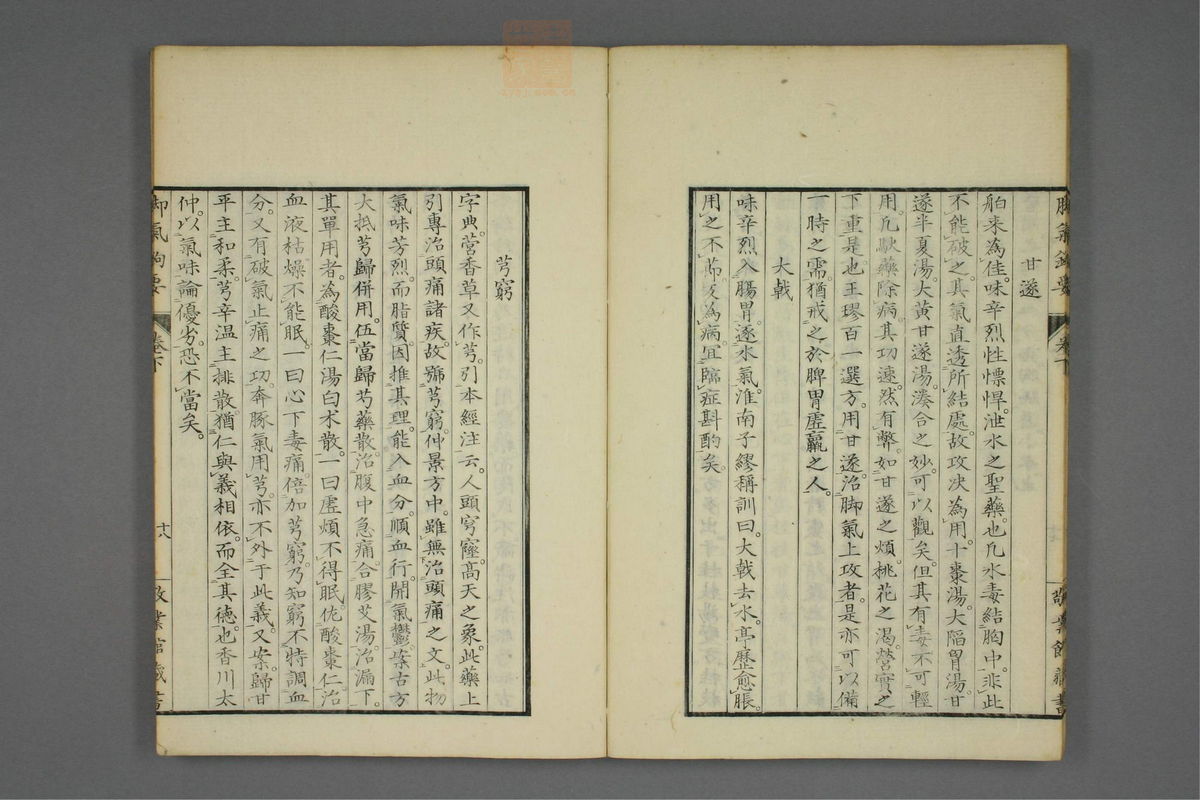 甘遂
舶来為佳。味辛烈性慓悍。泄水之聖藥也。凡水毒結胸中。非此
不能破之。其氣直透所結處。故攻决為用。十棗湯。大陷胃湯。甘
遂半夏湯。大黄甘遂湯。湊合之妙。可以觀矣。但其有毒不可輕
用。凡駃藥除病。其功速。然有弊。如甘遂之煩。桃花之渴。營實之
下重是也。王璆百一選方。用甘遂。治脚氣上攻者。是亦可以備
一時之需。猶戒之於脾胃虛羸之人。
大戟
味辛烈。入腸胃。逐水氣。淮南子繆稱訓曰。大戟去水。亭歷愈脹。
用之不節。反為病。宜臨症斟酌矣。
芎窮
字典。营香草又作芎。引本經注云。人頭穹窿。高天之象。此藥上
引專治頭痛諸疾。故號芎窮。仲景方中。雖無治頭痛之文。此物
氣味芳烈。而脂質。因推其理。能入血分。順血行。開氣鬱。案古方
大抵芎歸併用。伍當歸芍藥散。治腹中急痛。合膠艾湯。治漏下。
其單用者。為酸棗仁湯白术散。一曰虛煩不得眠。佐酸棗仁。治
血液枯燥不能眠。一曰心下毒痛。倍加芎窮。乃知窮不特調血
分。又有破氣止痛之功。奔豚氣用芎。亦不外于此義。又案。歸甘
平主和柔。芎辛温主排散。猶仁與義相依。而全其德也。香川太
仲。以氣味論優劣。恐不當矣。
卷下
十八
敬業館藏書